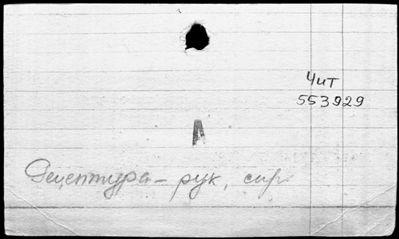 Чит
553929
А
Рецептура – рук, сир.